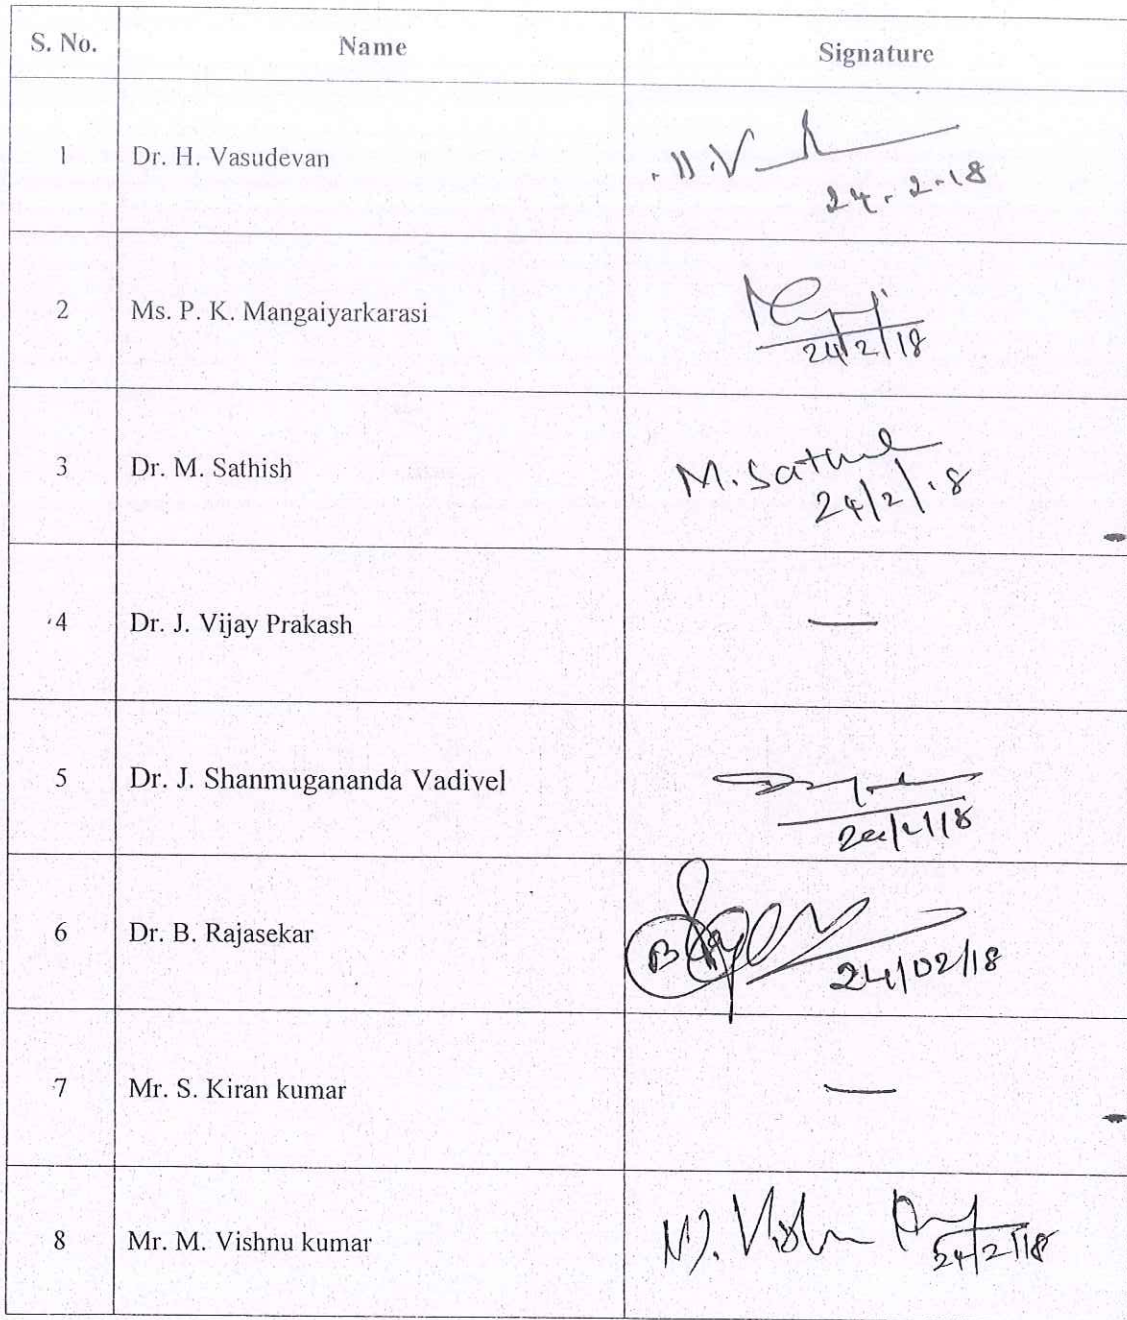 S. No. Name Signature
1 Dr. H. Vasudevan H.V
24.2.18
2 Ms. P. K. Mangaiyarkarasi
24/2/18
3 Dr. M. Sathish M. Sathish
24/2/18
4 Dr. J. Vijay Prakash —
5 Dr. J. Shanmugananda Vadivel
6 Dr. B. Rajasekar
24/02/18
7 Mr. S. Kiran kumar —
8 Mr. M. Vishnu kumar M. Vishnu
24/2/18